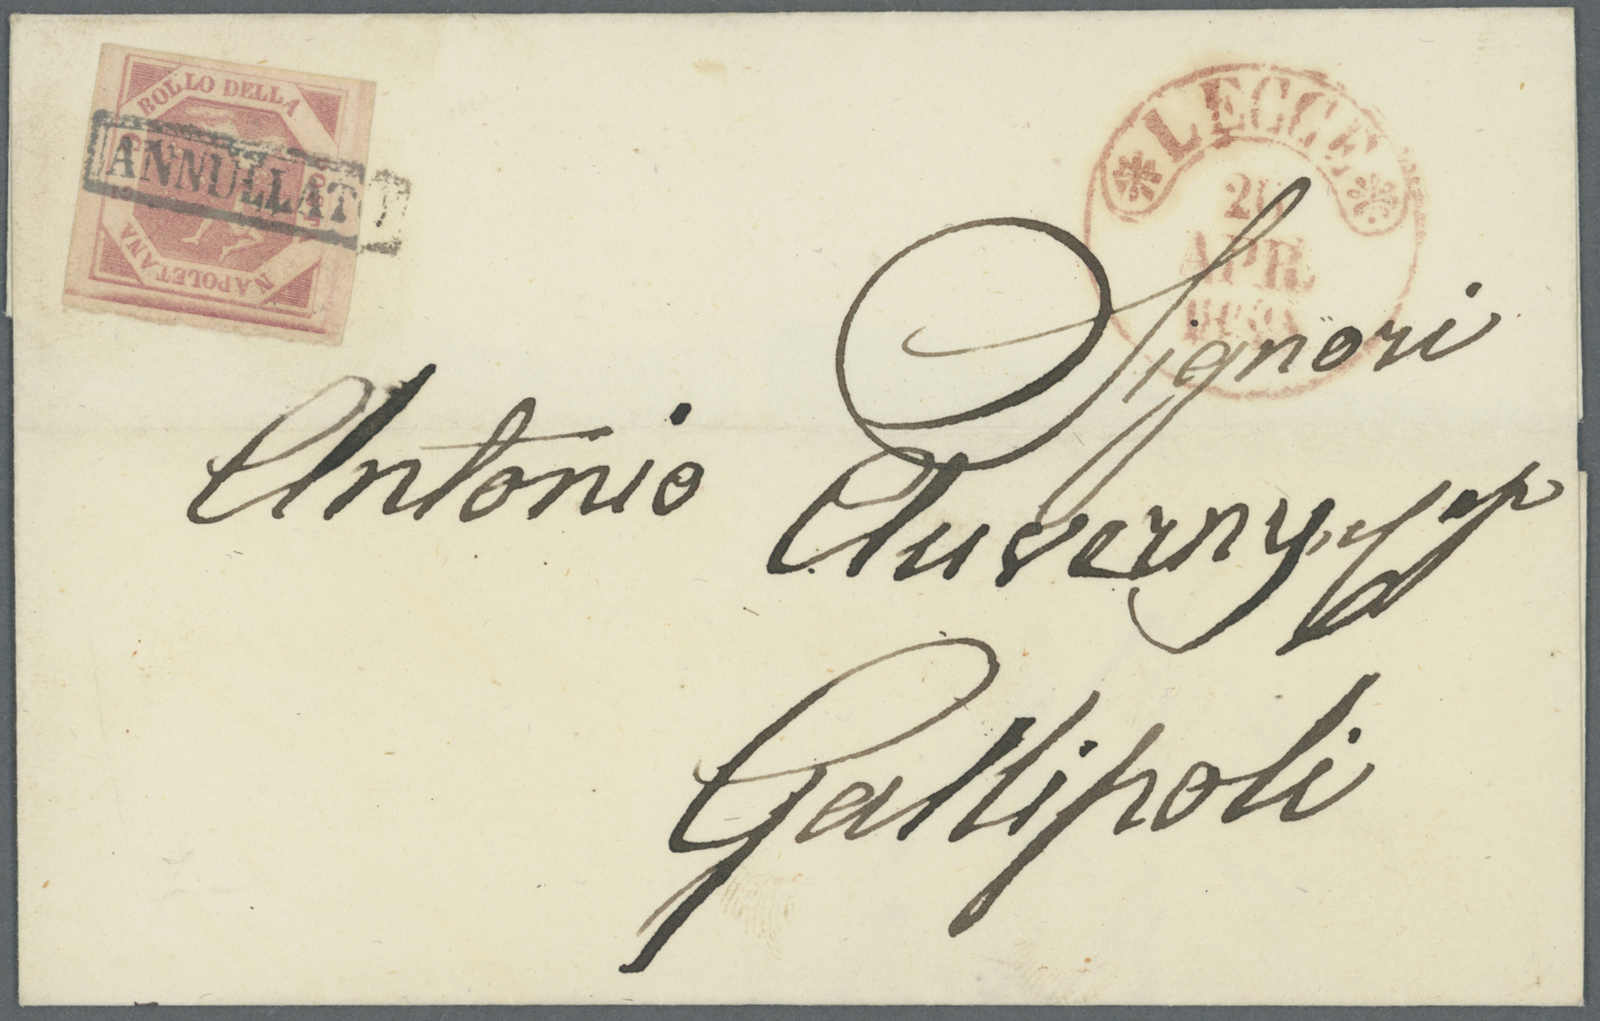 BOLLO DELLA
NAPOLETANA
ANNULLATO
LECCE
APR.
Signori
Antonio Auverny
Gallipoli